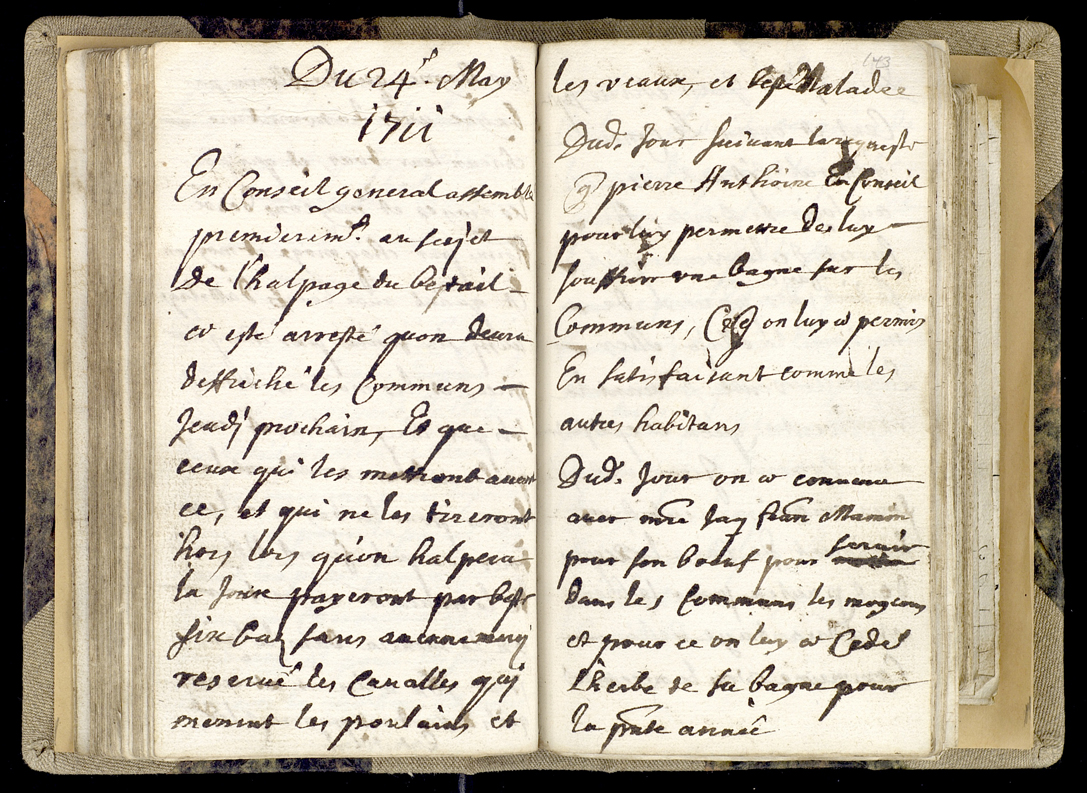 Du 24.e May
1711
En Conseil general assemblé
premierem.t au sujet
de l'halpage du betail
co este arresté quon deura
deffriché les Communs
Jeudj prochain, Et que
ceux quj les mettront auant
ce, et qui ne les tireront
hors lors qu'on halpera
la Joux payeront par beste
six baz sans aucune mercj
reserué les Caualles quj
menent les poulains et
143
les veaux, et beste Malades
Dud. Jour suiuant la requeste
pierre Anthoine En Conseil
pour luy permettre de luy
souffrir une bagne sur les
Communs, on luy co permis
En satisfaisant comme les
autres habitans
Dud. Jour on co conuenu
auec mre Jaq fran Mamin
pour son bœuf pour seruir
dans les Communs les moyens
et pour ce on luy co Cedé
L'herbe de sa bagne pour
la pnte année